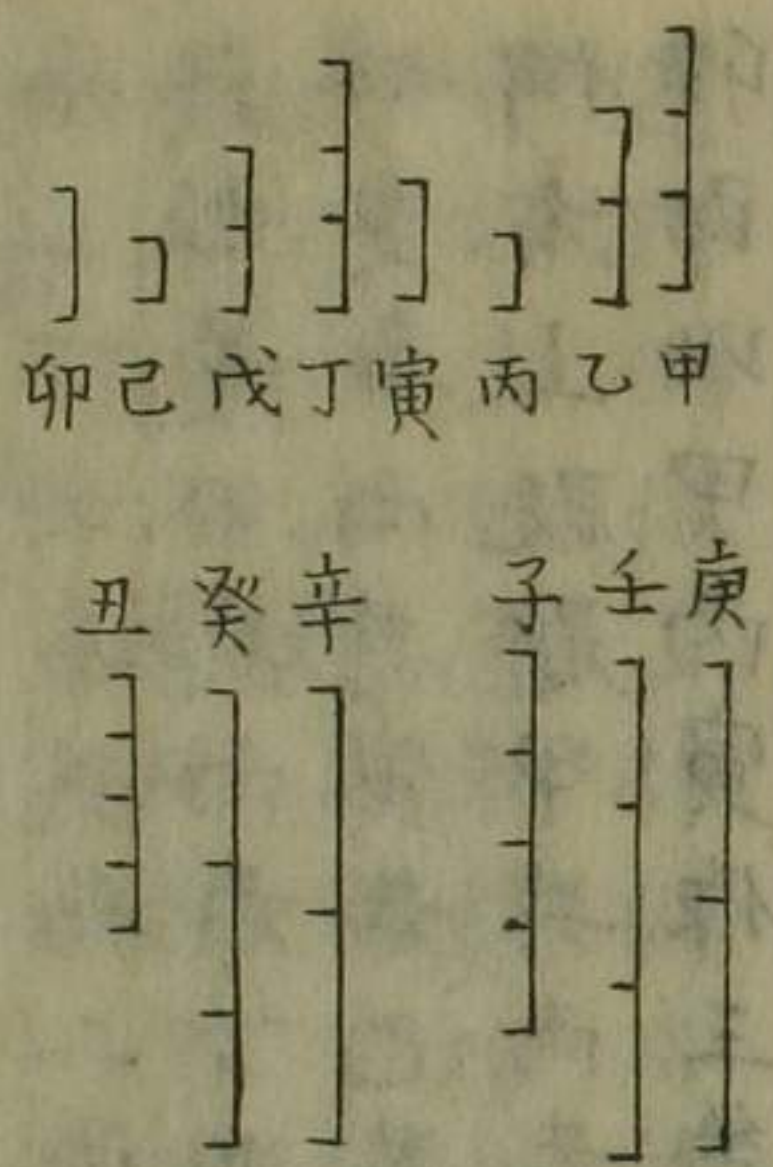 甲乙丙寅丁戊己卯
庚壬子辛癸丑